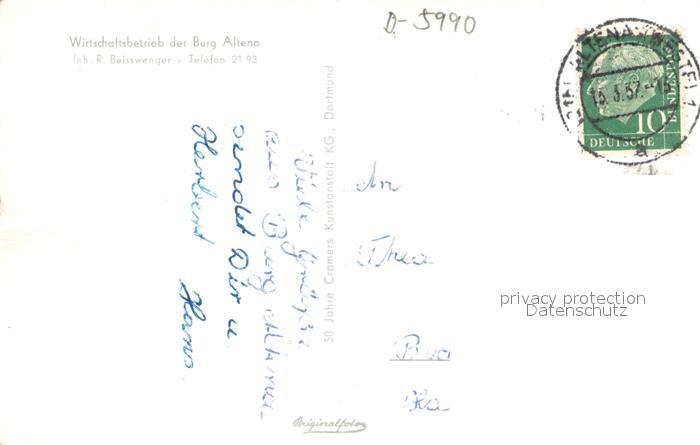 D-5990
Wirtschaftsbetrieb der Burg Altena
Inh. R. Beisswenger / Telefon 21 93
Viele Grüße
aus Burg Altena
sendet Dir u.
Herbert Hans.
50 Jahre Cramers Kunstanstalt KG., Dortmund
An
Thea
privacy protection
Datenschutz
Originalfoto
ALTENA (WESTF) 1
15.3.57.-15
a
10
DEUTSCHE
BUNDESPOST